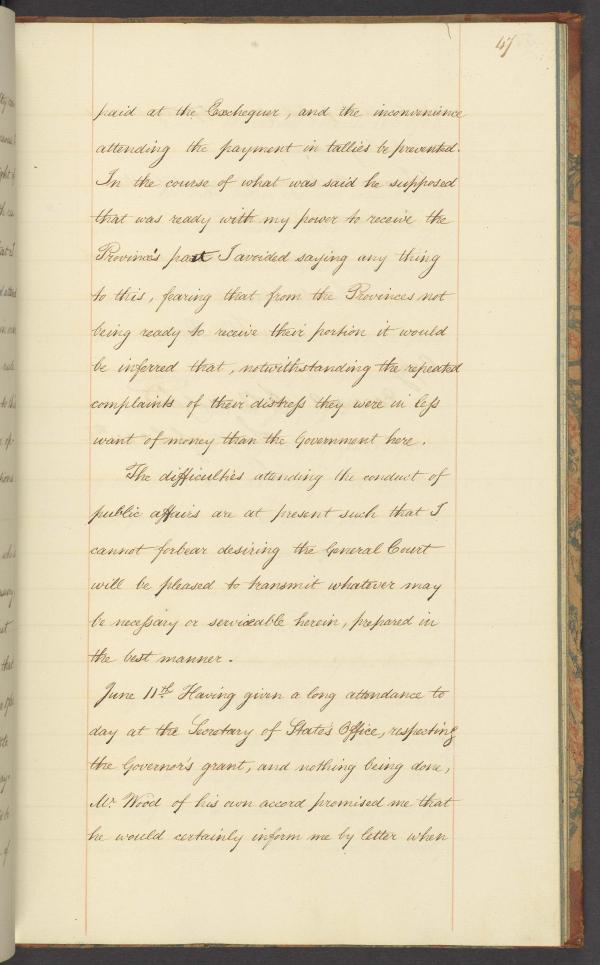 47
paid at the Exchequer, and the inconvenience
attending the payment in tallies be prevented.
In the course of what was said he supposed
that was ready with my power to receive the
Province's part I avoided saying any thing
to this, fearing that from the Provinces not
being ready to receive their portion it would
be inferred that, notwithstanding the repeated
complaints of their distress they were in less
want of money than the Government here.
The difficulties attending the conduct of
public affairs are at present such that I
cannot forbear desiring the General Court
will be pleased to transmit whatever may
be necessary or serviceable herein, prepared in
the best manner.
June 11th Having given a long attendance to
day at the Secretary of State's Office, respecting
the Governor's grant, and nothing being done,
Mr Wood of his own accord promised me that
he would certainly inform me by letter when